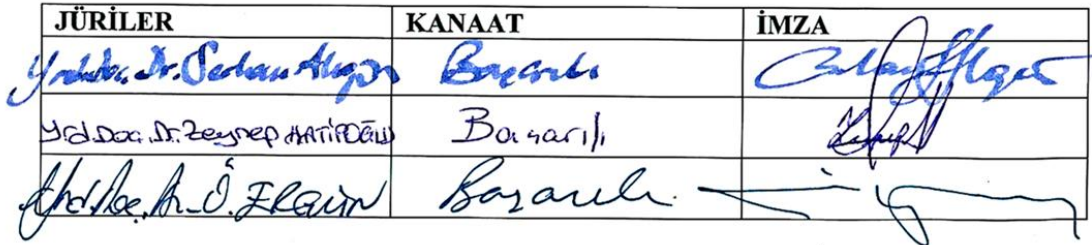 JÜRİLER KANAAT İMZA
Yrd.Doc. Dr. Başarılı
Yrd.Doc. Dr. Zeynep HATİPOĞLU Başarılı
Yrd.Doc. Dr. Ö. ERGÜN Başarılı